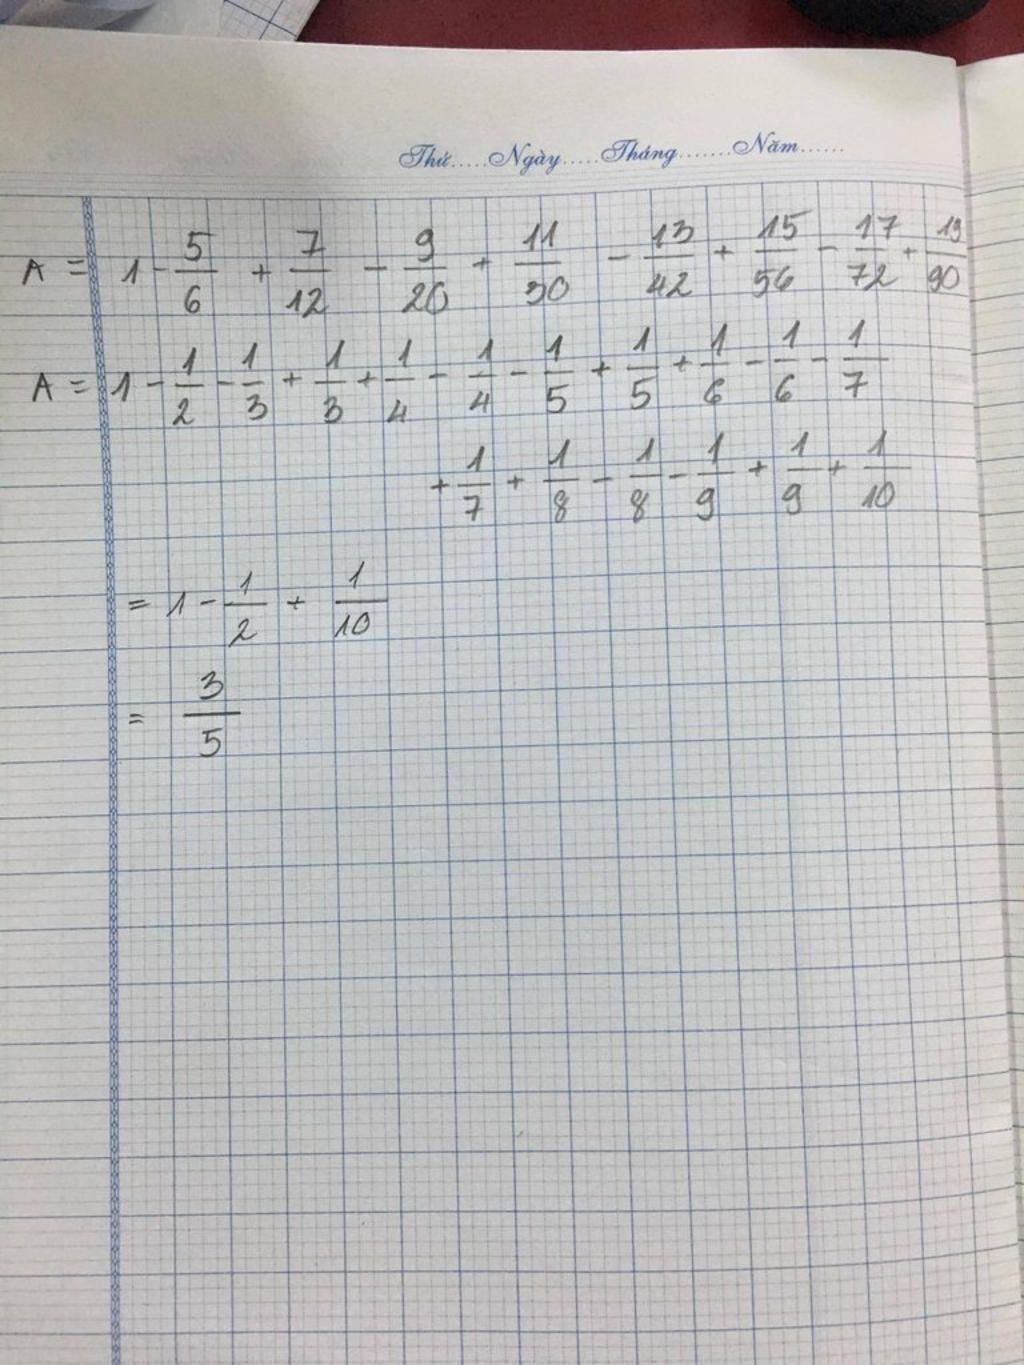 Thứ.....Ngày.....Tháng.......Năm......
A = 1 - 5/6 + 7/12 - 9/20 + 11/30 - 13/42 + 15/56 - 17/72 + 19/90
A = 1 - 1/2 - 1/3 + 1/3 + 1/4 - 1/4 - 1/5 + 1/5 + 1/6 - 1/6 - 1/7
+ 1/7 + 1/8 - 1/8 - 1/9 + 1/9 + 1/10
= 1 - 1/2 + 1/10
= 3/5